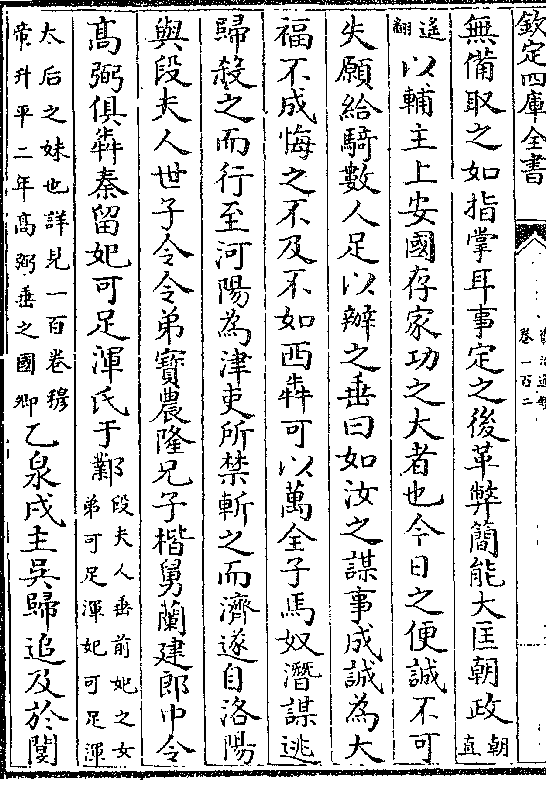 欽定四庫全書
資治通鑑
卷一百二
無備取之如指掌耳事定之後革弊簡能大匡朝政朝直
遥翻以輔主上安國存家功之大者也今日之便誠不可
失願給騎數人足以辦之垂曰如汝之謀事成誠為大
福不成悔之不及不如西犇可以萬全子馬奴潛謀逃
歸殺之而行至河陽為津吏所禁斬之而濟遂自洛陽
與段夫人世子令令弟寶農隆兄子楷舅蘭建郎中令
高弼俱犇秦留妃可足渾氏于鄴段夫人垂前妃之女弟可足渾妃可足渾
大后之妹也詳見一百卷穆帝升平二年高弼垂之國卿乙泉戍主吳歸追及於閿